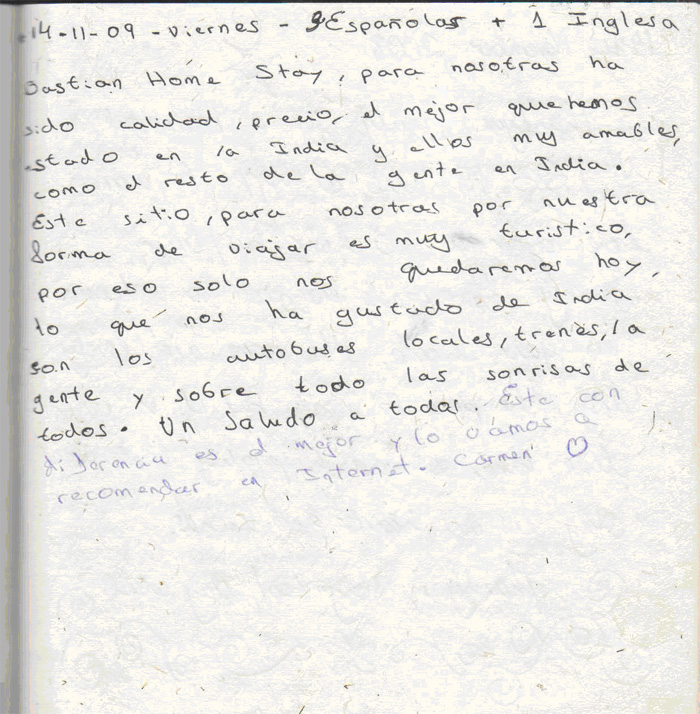 14-11-09 - viernes - 3 Españolas + 1 Inglesa
Bastian Home Stay, para nosotras ha
sido calidad, precio, el mejor que hemos
estado en la India y ellos muy amables,
como el resto de la gente en India.
Este sitio, para nosotras por nuestra
forma de viajar es muy turistico,
por eso solo nos quedaremos hoy,
lo que nos ha gustado de India
son los autobuses locales, trenes, la
gente y sobre todo las sonrisas de
todos. Un Saludo a todas. Este con
diferencia es el mejor y lo vamos a
recomendar en Internet. Carmen ♡